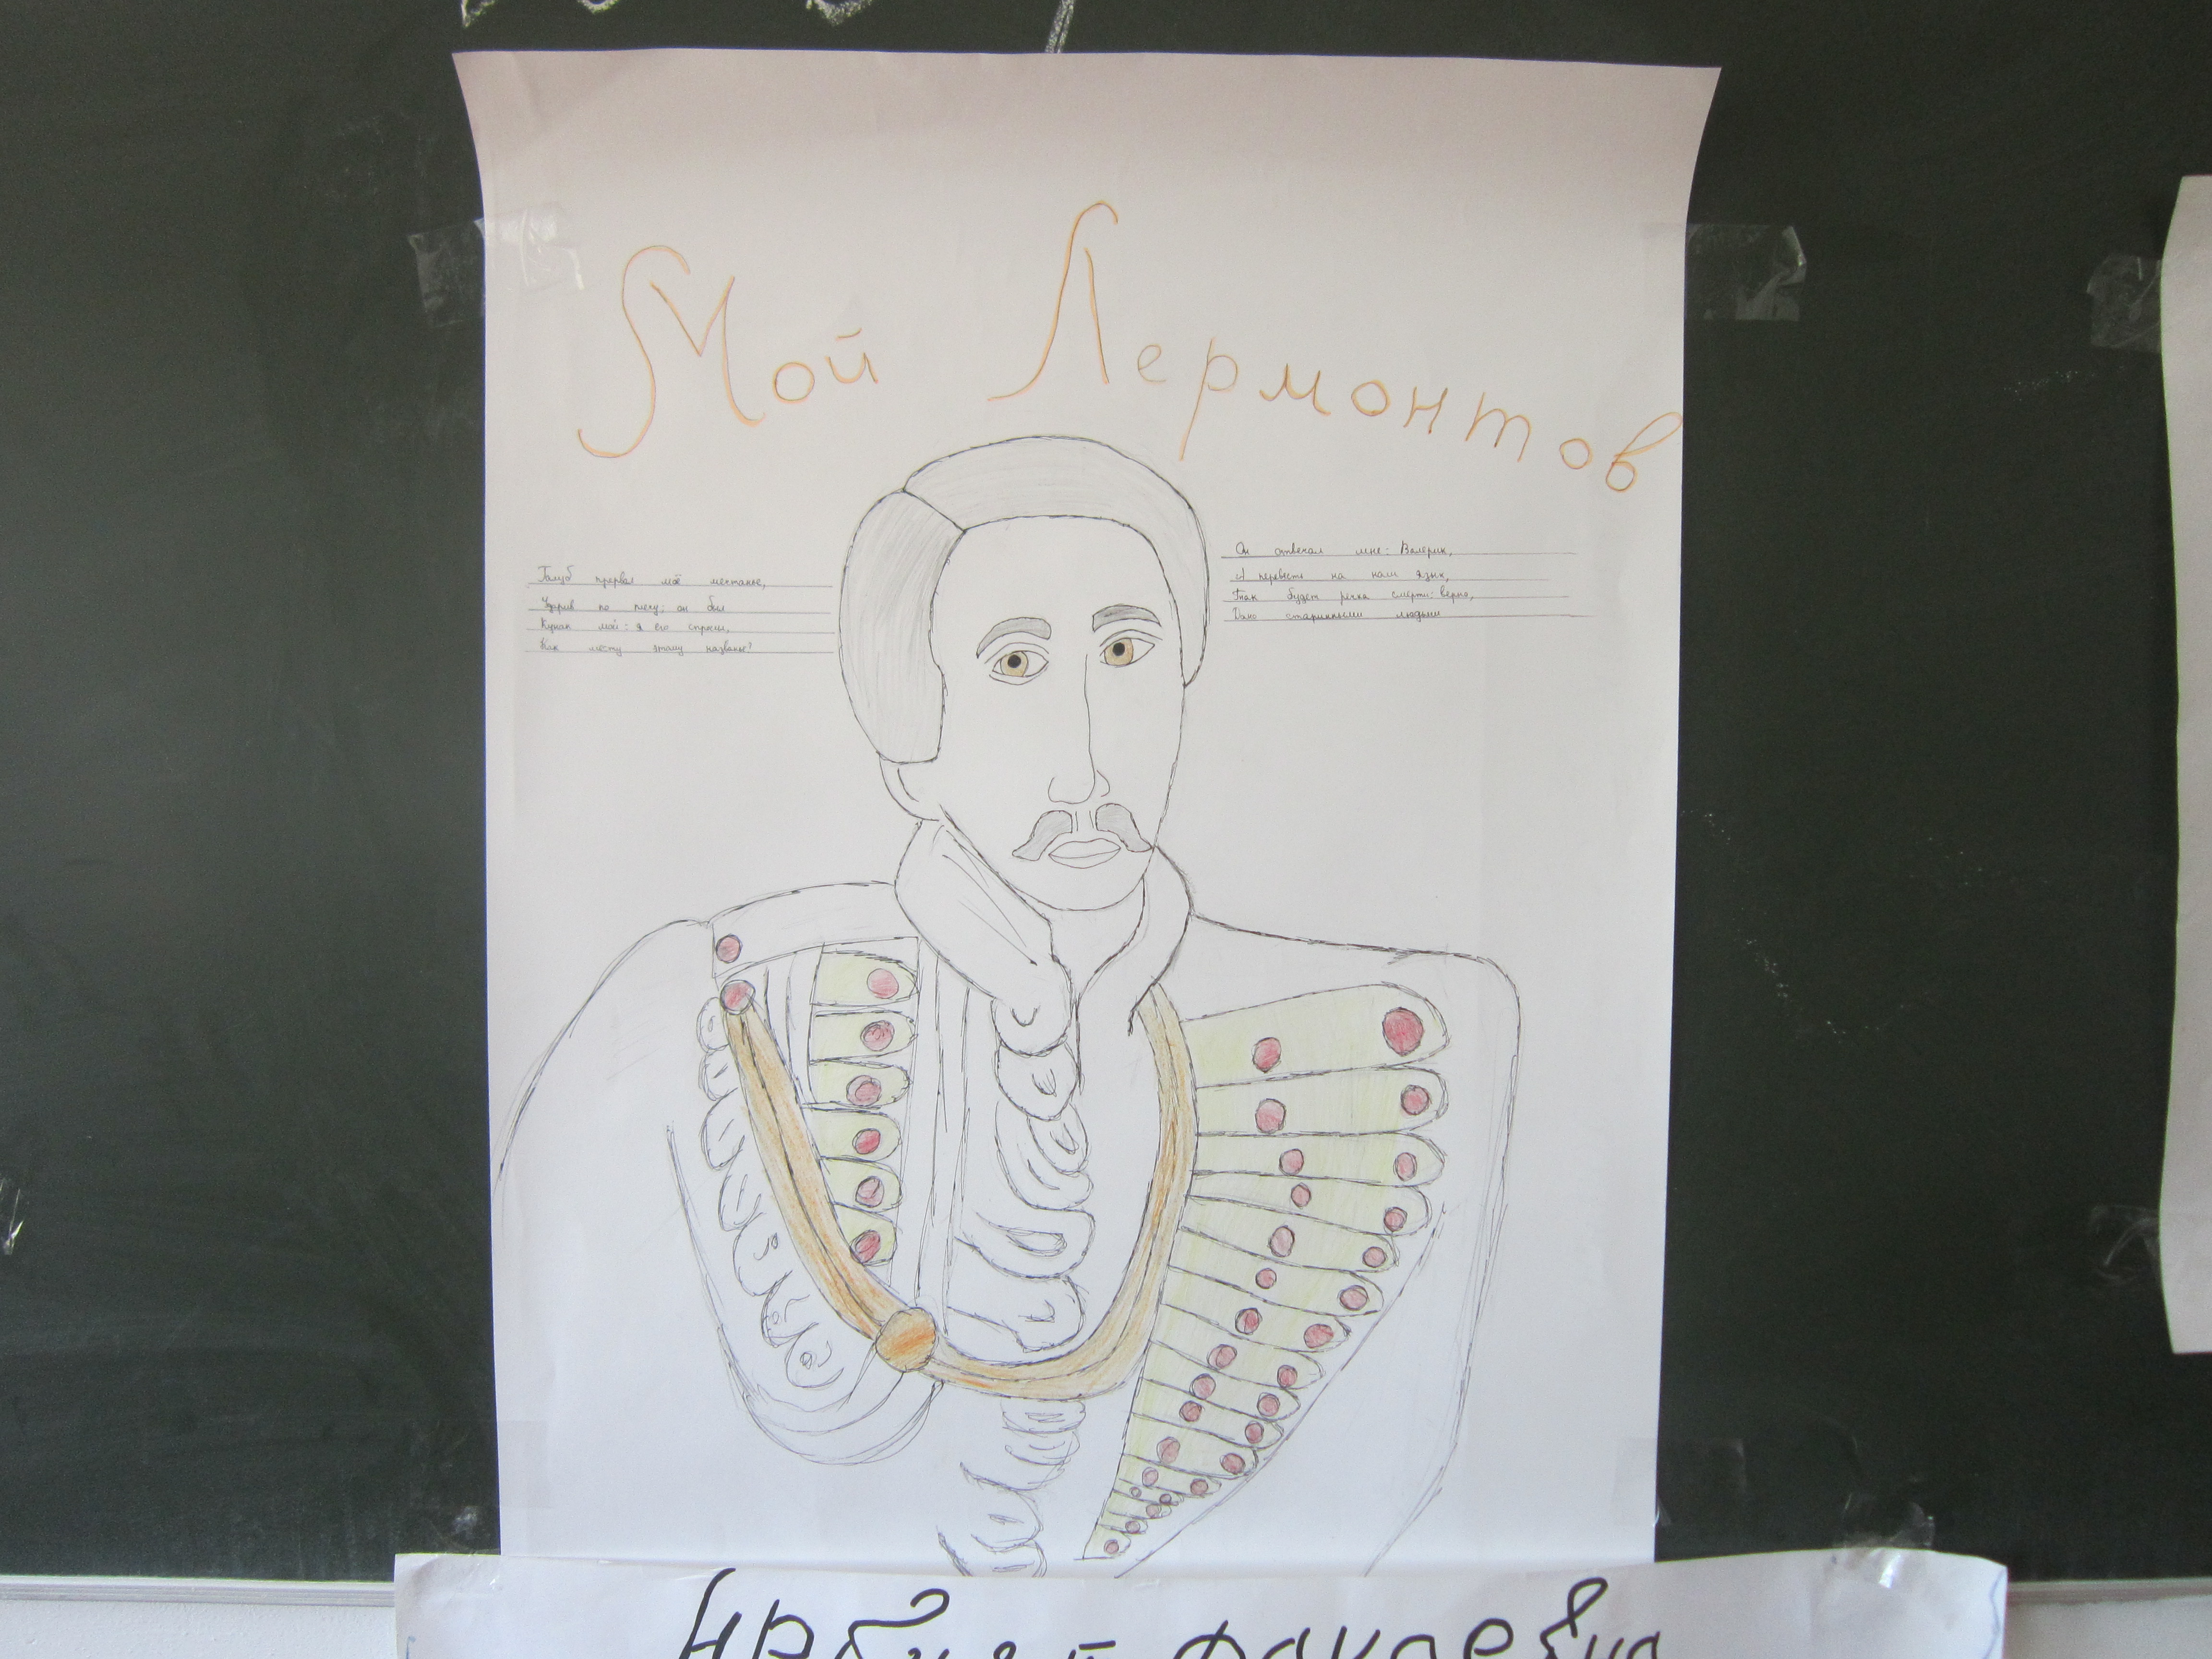 Мой Лермонтов
Галуб прервал моё мечтанье,
Ударив по плечу; он был
Кунак мой: я его спросил,
Как месту этому названье?
Он отвечал мне: Валерик,
А перевесть на наш язык,
Так будет речка смерти: верно,
Дано старинными людьми